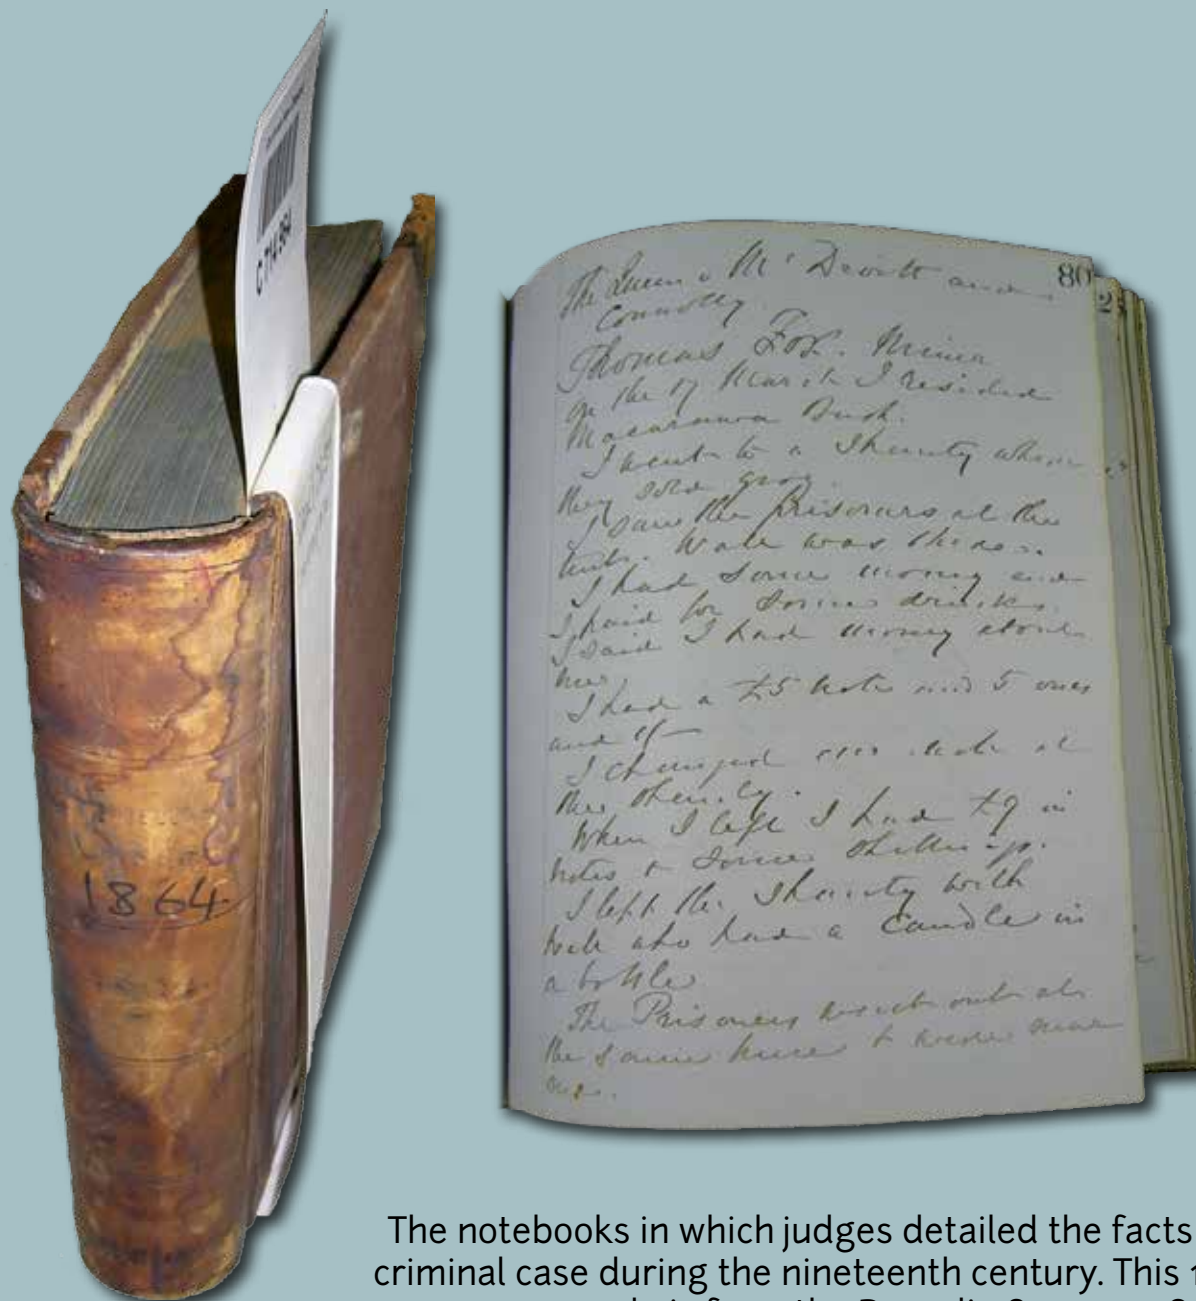 C 714 984
1864
80
2
The Queen v McDevitt and
Connolly
Thomas Fox. Miner
On the 17 March I resided
Macarawa Bush.
I went to a Shanty where
they sold grog
I saw the Prisoners at the
tents. was there.
I had some money and
I paid for some drinks.
I said I had money about
me.
I had a £5 note and 5 ones
and
I changed one note at
the Shanty.
When I left I had £9 in
notes & some shillings.
I left the Shanty with
who had a Candle in
a bottle
The Prisoners went out at
the same time & were near
me.
The notebooks in which judges detailed the facts
criminal case during the nineteenth century. This